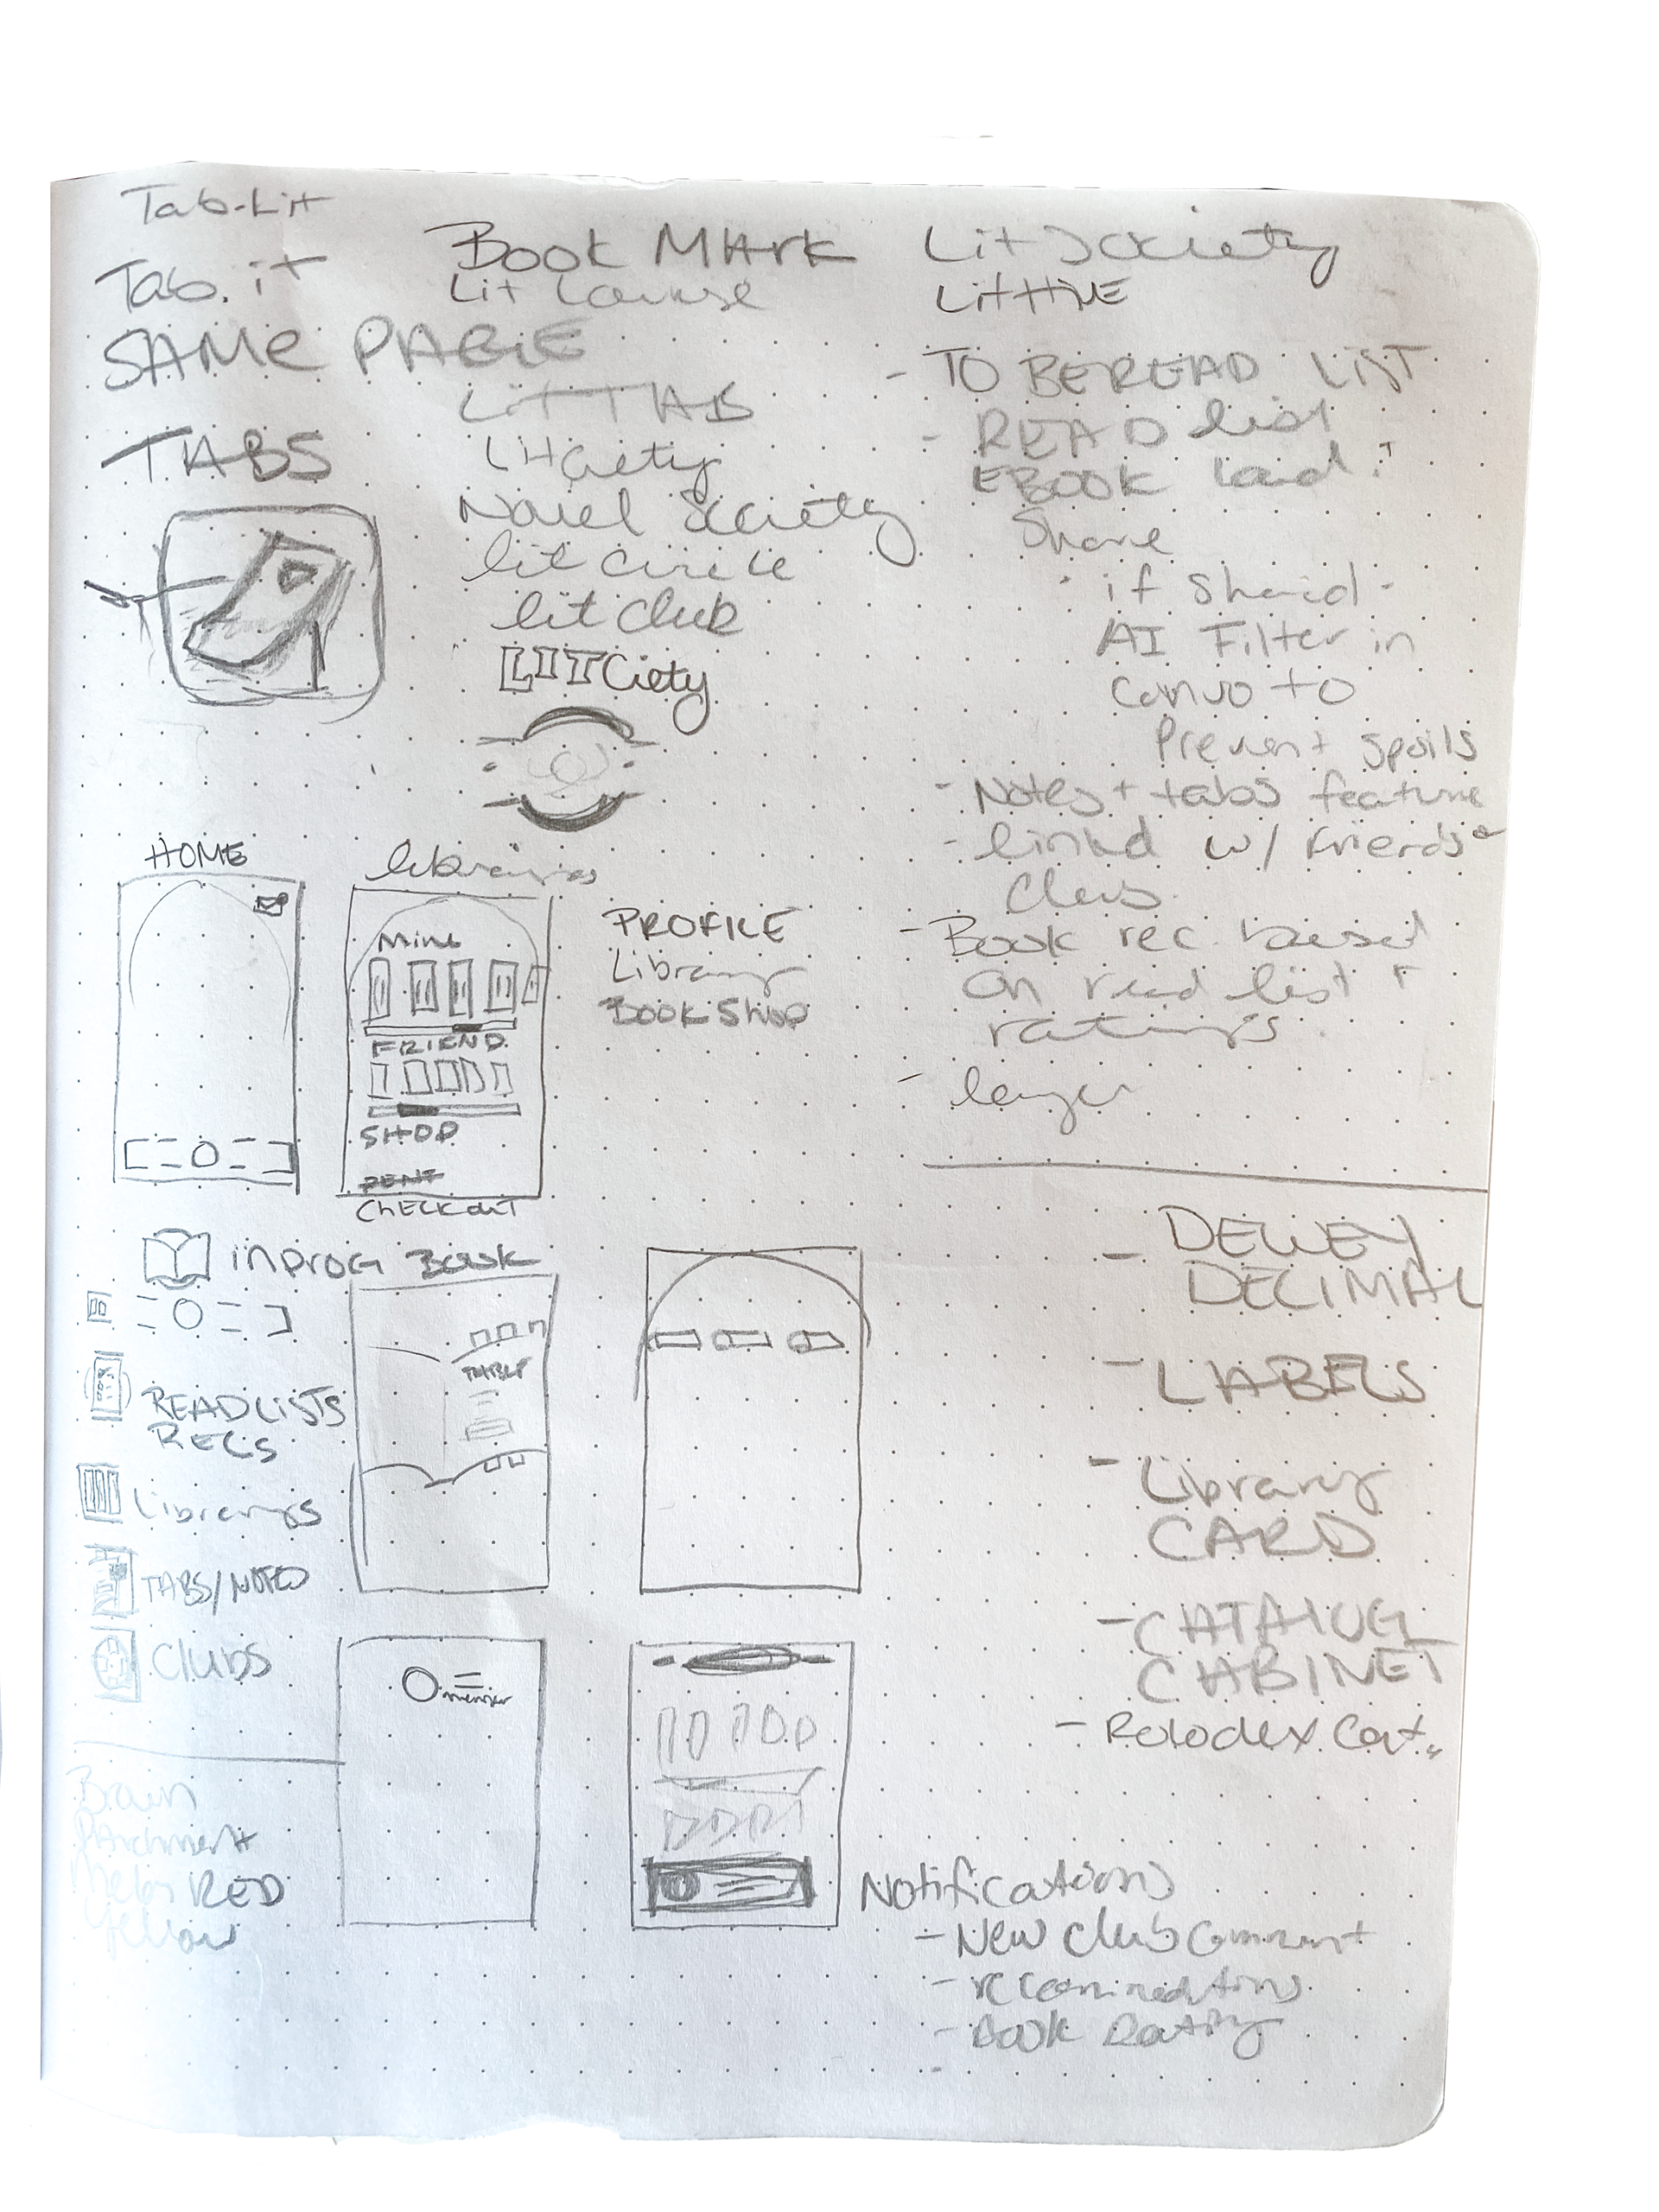 Tab-Lit
Tab.it
SAME PAGE
TABS
BOOK MArK
Lit Lounge
LitTAB
LitCiety
Novel Society
lit circle
lit club
LITCiety
Lit Society
- TO BE READ LIST
- READ list
EBOOK
Share
- if Shared -
AI Filter in
Convo to
Prevent Spoils
- Notes + tabs feature
- linked w/ Friends +
Clubs
- Book rec. based
on read list +
ratings
HOME
libraries
Mine
FRIEND
SHOP
RENT
CHECKOUT
PROFILE
Library
BOOK SHOP
INPROG BOOK
READLISTS
RECS
Librarys
TABS/NOTES
Clubs
- DEWEY
DECIMAL
- LABELS
- Library
CARD
- CATALOG
CABINET
- Rolodex Cat.
Parchment
RED
Yellow
Notifications
- New Club Comment
- recommendations
- Book Rating